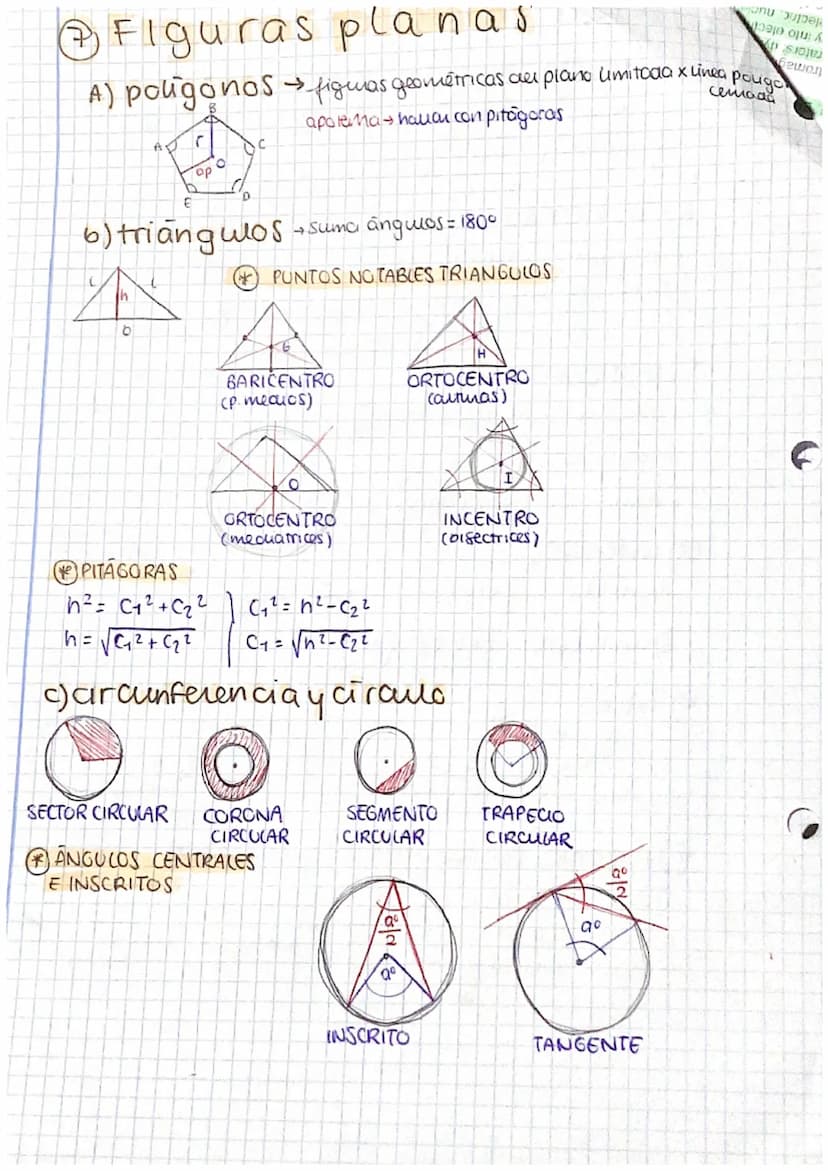 7 Figuras planas
A) polígonos → figuras geométricas del plano limitada x línea poligo
cerrada
apotema → hallar con pitágoras
B
A r C
ap O
E D
b) triángulos → suma ángulos = 180º
* PUNTOS NOTABLES TRIANGULOS
L L
h
b
G
H
BARICENTRO ORTOCENTRO
(p. medios) (alturas)
O
I
ORTOCENTRO INCENTRO
(mediatrices) (bisectrices)
* PITÁGORAS
h² = C₁² + C₂² C₁² = h² - C₂²
h = √C₁² + C₂² C₁ = √h² - C₂²
c) circunferencia y círculo
SECTOR CIRCULAR CORONA SEGMENTO TRAPECIO
CIRCULAR CIRCULAR CIRCULAR
* ÁNGULOS CENTRALES
E INSCRITOS
aº/2
aº
aº/2
aº
INSCRITO
TANGENTE